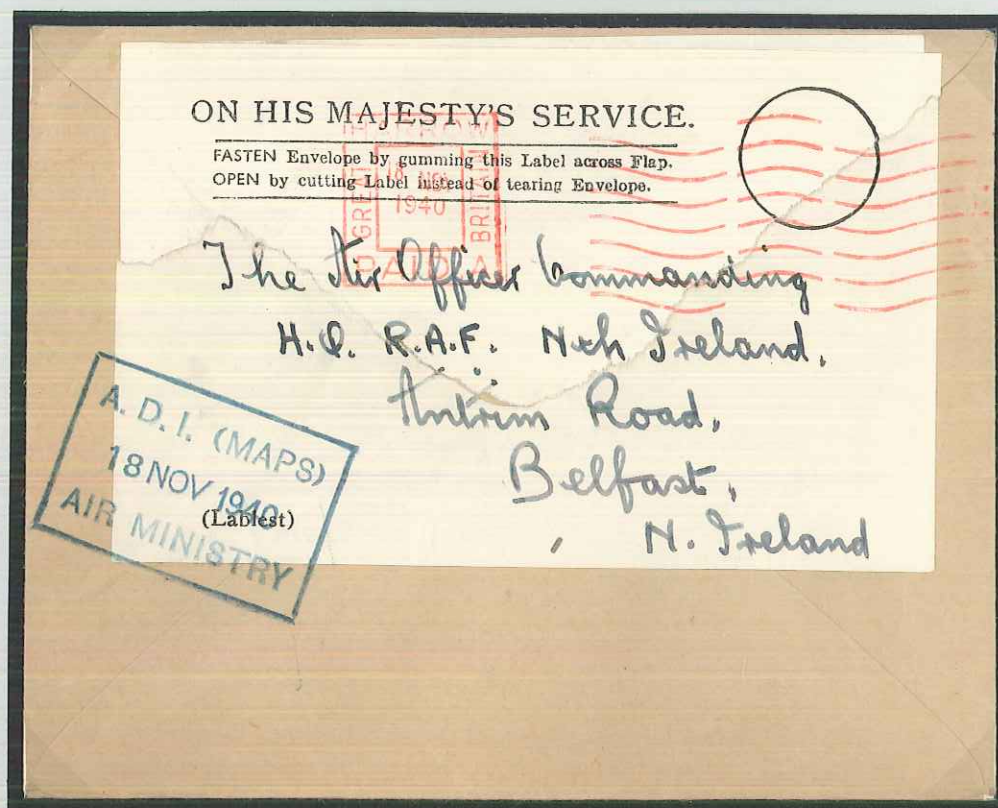 ON HIS MAJESTY'S SERVICE.
FASTEN Envelope by gumming this Label across Flap.
OPEN by cutting Label instead of tearing Envelope.
HARROW
GREAT
18 NOV
1940
BRITAIN
PAID
The Air Officer Commanding
H.Q. R.A.F. Nth Ireland.
Antrim Road,
Belfast,
N. Ireland
A. D. I. (MAPS)
18 NOV 1940
AIR MINISTRY
(Lablest)